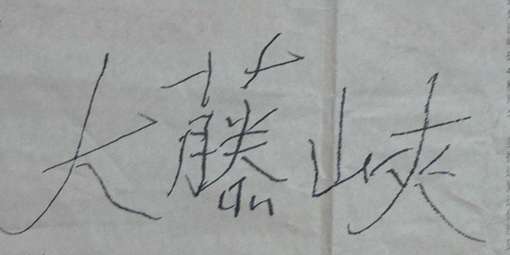 大藤峡